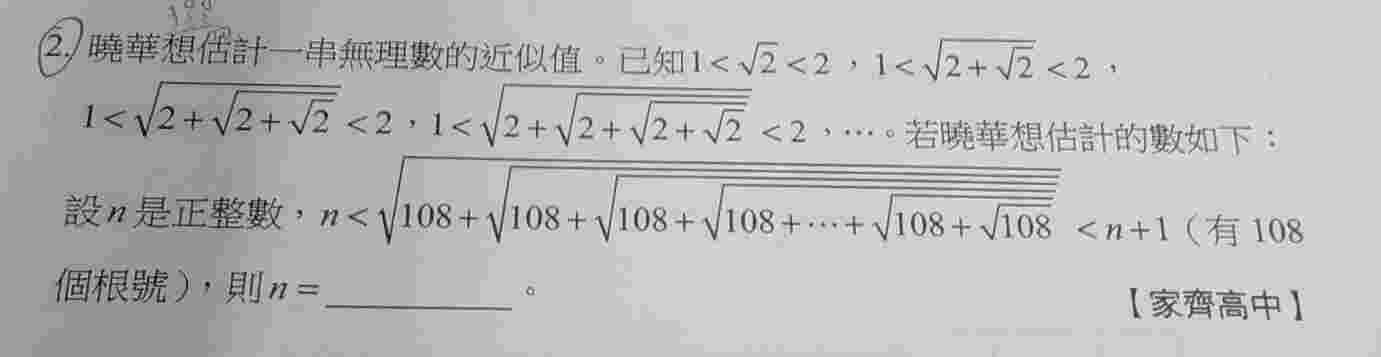 2. 曉華想估計一串無理數的近似值。已知1<√2<2，1<√(2+√2)<2，
1<√(2+√(2+√2))<2，1<√(2+√(2+√(2+√2)))<2，…。若曉華想估計的數如下：
設n是正整數，n<√(108+√(108+√(108+√(108+…+√(108+√108)))))<n+1（有108
個根號），則n=________。
【家齊高中】